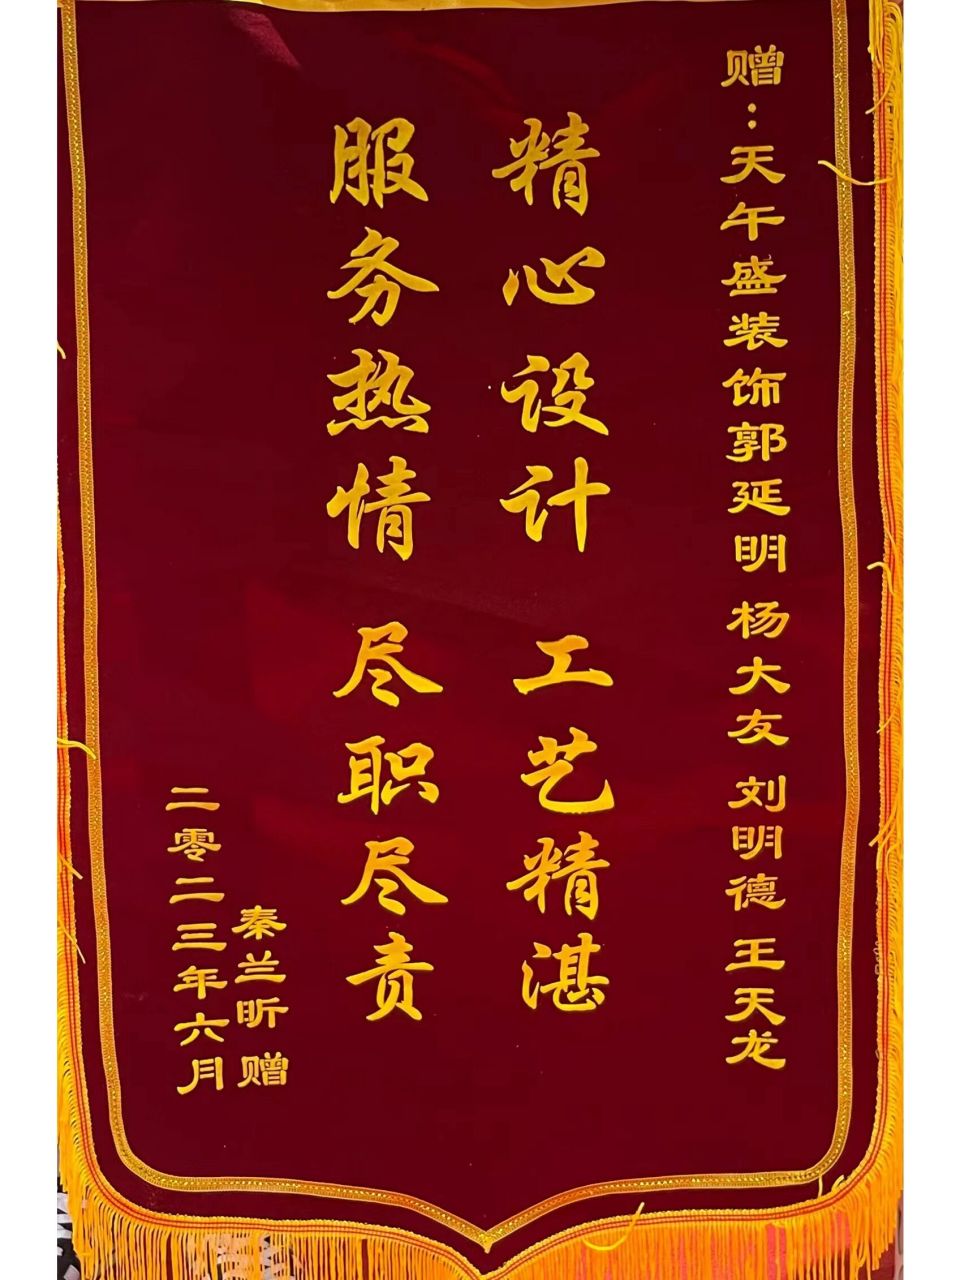 赠：天午盛装饰郭延明 杨大友 刘明德 王天龙
精心设计 工艺精湛
服务热情 尽职尽责
秦兰昕 赠
二零二三年六月